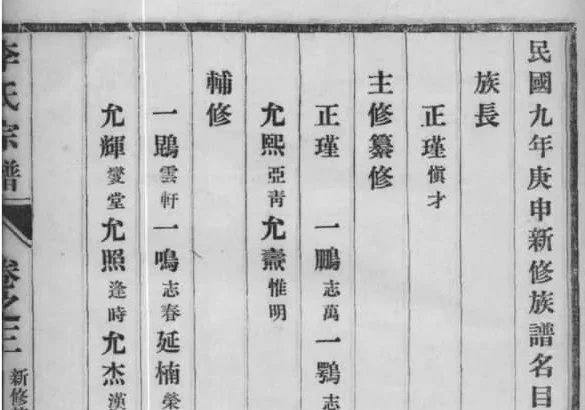 民國九年庚申新修族譜名目
族長
正瑾 愼才
主修纂修
正瑾 一鵬 志萬 一鶚 志
允熙 亞靑 允燾 惟明
輔修
一鵾 雲軒 一鳴 志春 延楠 榮
允輝 燮堂 允照 逢時 允杰 漢
李氏宗譜 卷之三 新修